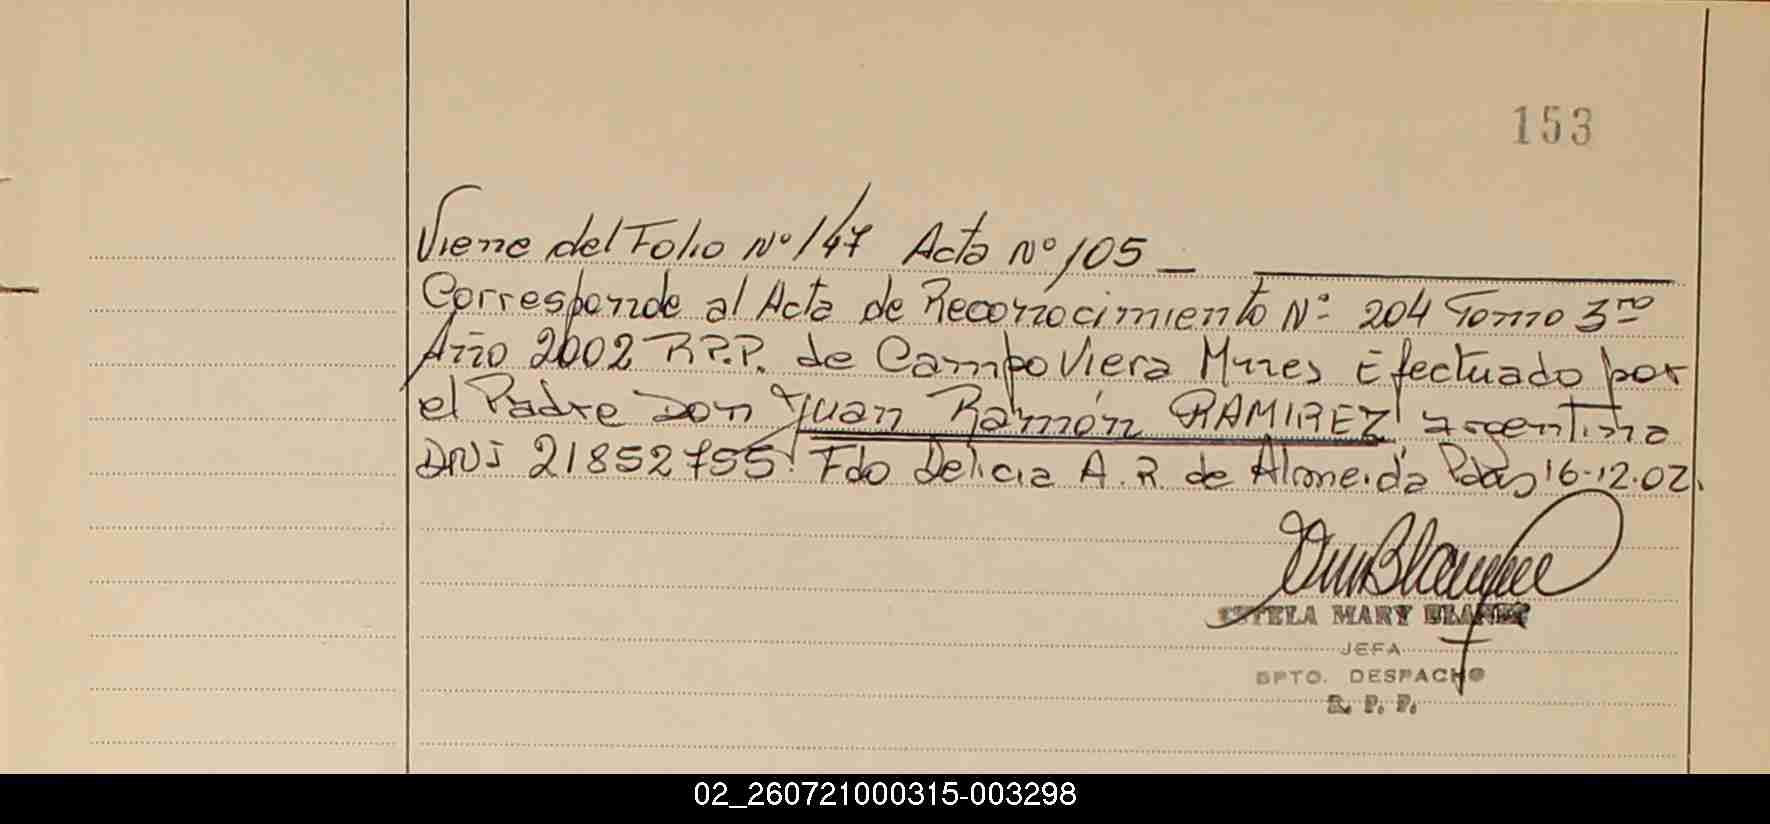 153
Viene del Folio Nº 147 Acta Nº 105 _
Corresponde al Acta de Reconocimiento Nº 204 Tomo 3ro
Año 2002 R.P.P. de Campo Viera Mnes Efectuado por
el Padre Don Juan Ramón RAMIREZ argentino
DNI 21852755. Fdo Delicia A. R. de Almeida Pdas 16-12.02.
ESTELA MARY BLANCO
JEFA
DPTO. DESPACHO
R. P. P.
02_260721000315-003298